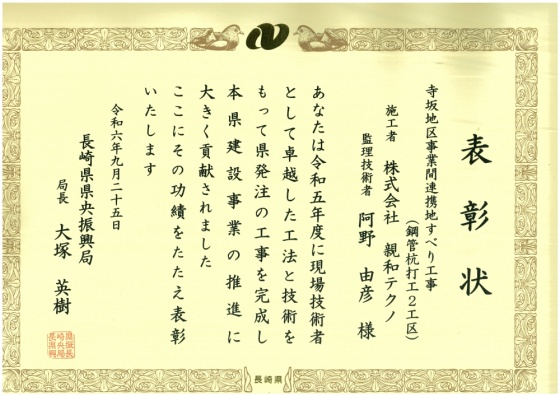 表彰状
寺坂地区事業間連携地すべり工事
（鋼管杭打工２工区）
施工者 株式会社 親和テクノ
監理技術者 阿野 由彦 様
あなたは令和五年度に現場技術者
として卓越した工法と技術を
もって県発注の工事を完成し
本県建設事業の推進に
大きく貢献されました
ここにその功績をたたえ表彰
いたします
令和六年九月二十五日
長崎県県央振興局
局長 大塚 英樹
長崎県